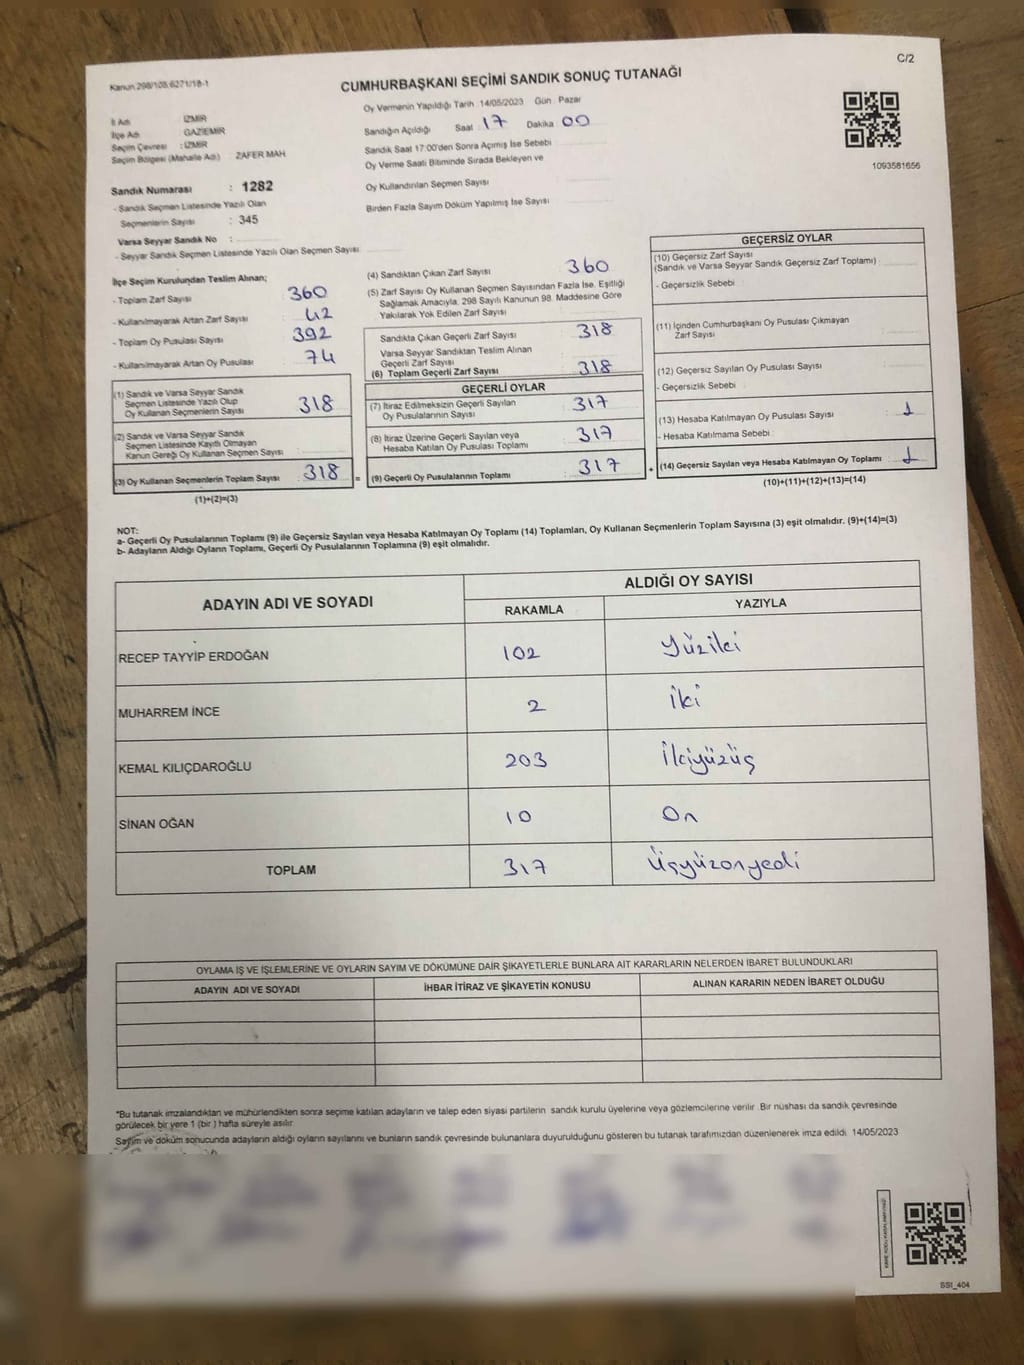 C/2
Kanun 298/108;6271/18-1
CUMHURBAŞKANI SEÇİMİ SANDIK SONUÇ TUTANAĞI
1093581656
İl Adı : İZMİR
İlçe Adı GAZİEMİR
Seçim Çevresi : İZMİR
Seçim Bölgesi (Mahalle Adı) : ZAFER MAH
Sandık Numarası : 1282
- Sandık Seçmen Listesinde Yazılı Olan
Seçmenlerin Sayısı : 345
Varsa Seyyar Sandık No :
- Seyyar Sandık Seçmen Listesinde Yazılı Olan Seçmen Sayısı
Oy Vermenin Yapıldığı Tarih 14/05/2023 Gün Pazar
Sandığın Açıldığı Saat 17 Dakika 00
Sandık Saat 17:00'den Sonra Açımış İse Sebebi
Oy Verme Saati Bitiminde Sırada Bekleyen ve
Oy Kullandırılan Seçmen Sayısı
Birden Fazla Sayım Döküm Yapılmış İse Sayısı
İlçe Seçim Kurulundan Teslim Alınan;
- Toplam Zarf Sayısı 360
- Kullanılmayarak Artan Zarf Sayısı 42
- Toplam Oy Pusulası Sayısı 392
- Kullanılmayarak Artan Oy Pusulası 74
(1) Sandık ve Varsa Seyyar Sandık
Seçmen Listesinde Yazılı Olup
Oy Kullanan Seçmenlerin Sayısı 318
(2) Sandık ve Varsa Seyyar Sandık
Seçmen Listesinde Kayıtlı Olmayan
Kanun Gereği Oy Kullanan Seçmen Sayısı :
(3) Oy Kullanan Seçmenlerin Toplam Sayısı : 318 =
(1)+(2)=(3)
(4) Sandıktan Çıkan Zarf Sayısı 360
(5) Zarf Sayısı Oy Kullanan Seçmen Sayısından Fazla İse, Eşitliği
Sağlamak Amacıyla, 298 Sayılı Kanunun 98. Maddesine Göre
Yakılarak Yok Edilen Zarf Sayısı
Sandıkta Çıkan Geçerli Zarf Sayısı 318
Varsa Seyyar Sandıktan Teslim Alınan
Geçerli Zarf Sayısı
(6) Toplam Geçerli Zarf Sayısı 318
GEÇERLİ OYLAR
(7) İtiraz Edilmeksizin Geçerli Sayılan
Oy Pusulalarının Sayısı 317
(8) İtiraz Üzerine Geçerli Sayılan veya
Hesaba Katılan Oy Pusulası Toplamı 317
(9) Geçerli Oy Pusulalarının Toplamı : 317 +
GEÇERSİZ OYLAR
(10) Geçersiz Zarf Sayısı
(Sandık ve Varsa Seyyar Sandık Geçersiz Zarf Toplamı) :
- Geçersizlik Sebebi
(11) İçinden Cumhurbaşkanı Oy Pusulası Çıkmayan
Zarf Sayısı
(12) Geçersiz Sayılan Oy Pusulası Sayısı
- Geçersizlik Sebebi
(13) Hesaba Katılmayan Oy Pusulası Sayısı 1
- Hesaba Katılmama Sebebi
(14) Geçersiz Sayılan veya Hesaba Katılmayan Oy Toplamı : 1
(10)+(11)+(12)+(13)=(14)
NOT:
a- Geçerli Oy Pusulalarının Toplamı (9) ile Geçersiz Sayılan veya Hesaba Katılmayan Oy Toplamı (14) Toplamları, Oy Kullanan Seçmenlerin Toplam Sayısına (3) eşit olmalıdır. (9)+(14)=(3)
b- Adayların Aldığı Oyların Toplamı, Geçerli Oy Pusulalarının Toplamına (9) eşit olmalıdır.
ADAYIN ADI VE SOYADI ALDIĞI OY SAYISI
RAKAMLA YAZIYLA
RECEP TAYYİP ERDOĞAN 102 Yüziki
MUHARREM İNCE 2 İki
KEMAL KILIÇDAROĞLU 203 İkiyüzüç
SİNAN OĞAN 10 On
TOPLAM 317 Üçyüzonyedi
OYLAMA İŞ VE İŞLEMLERİNE VE OYLARIN SAYIM VE DÖKÜMÜNE DAİR ŞİKAYETLERLE BUNLARA AİT KARARLARIN NELERDEN İBARET BULUNDUKLARI
ADAYIN ADI VE SOYADI İHBAR İTİRAZ VE ŞİKAYETİN KONUSU ALINAN KARARIN NEDEN İBARET OLDUĞU
*Bu tutanak imzalandıktan ve mühürlendikten sonra seçime katılan adayların ve talep eden siyasi partilerin sandık kurulu üyelerine veya gözlemcilerine verilir. Bir nüshası da sandık çevresinde
görülecek bir yere 1 (bir ) hafta süreyle asılır
Sayım ve döküm sonucunda adayların aldığı oyların sayılarını ve bunların sandık çevresinde bulunanlara duyurulduğunu gösteren bu tutanak tarafımızdan düzenlenerek imza edildi. 14/05/2023
SSI_404